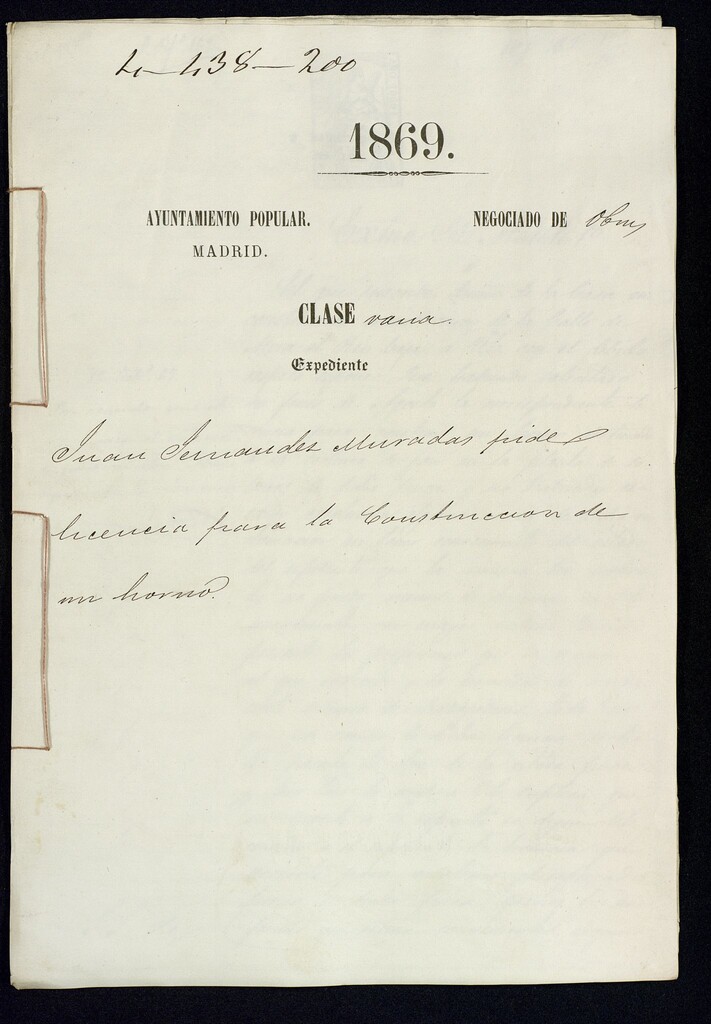 4-438-200
1869.
AYUNTAMIENTO POPULAR.
MADRID.
NEGOCIADO DE Obras
CLASE varia.
Expediente
Juan Fernandez Muradas pide
licencia para la Construccion de
un horno.